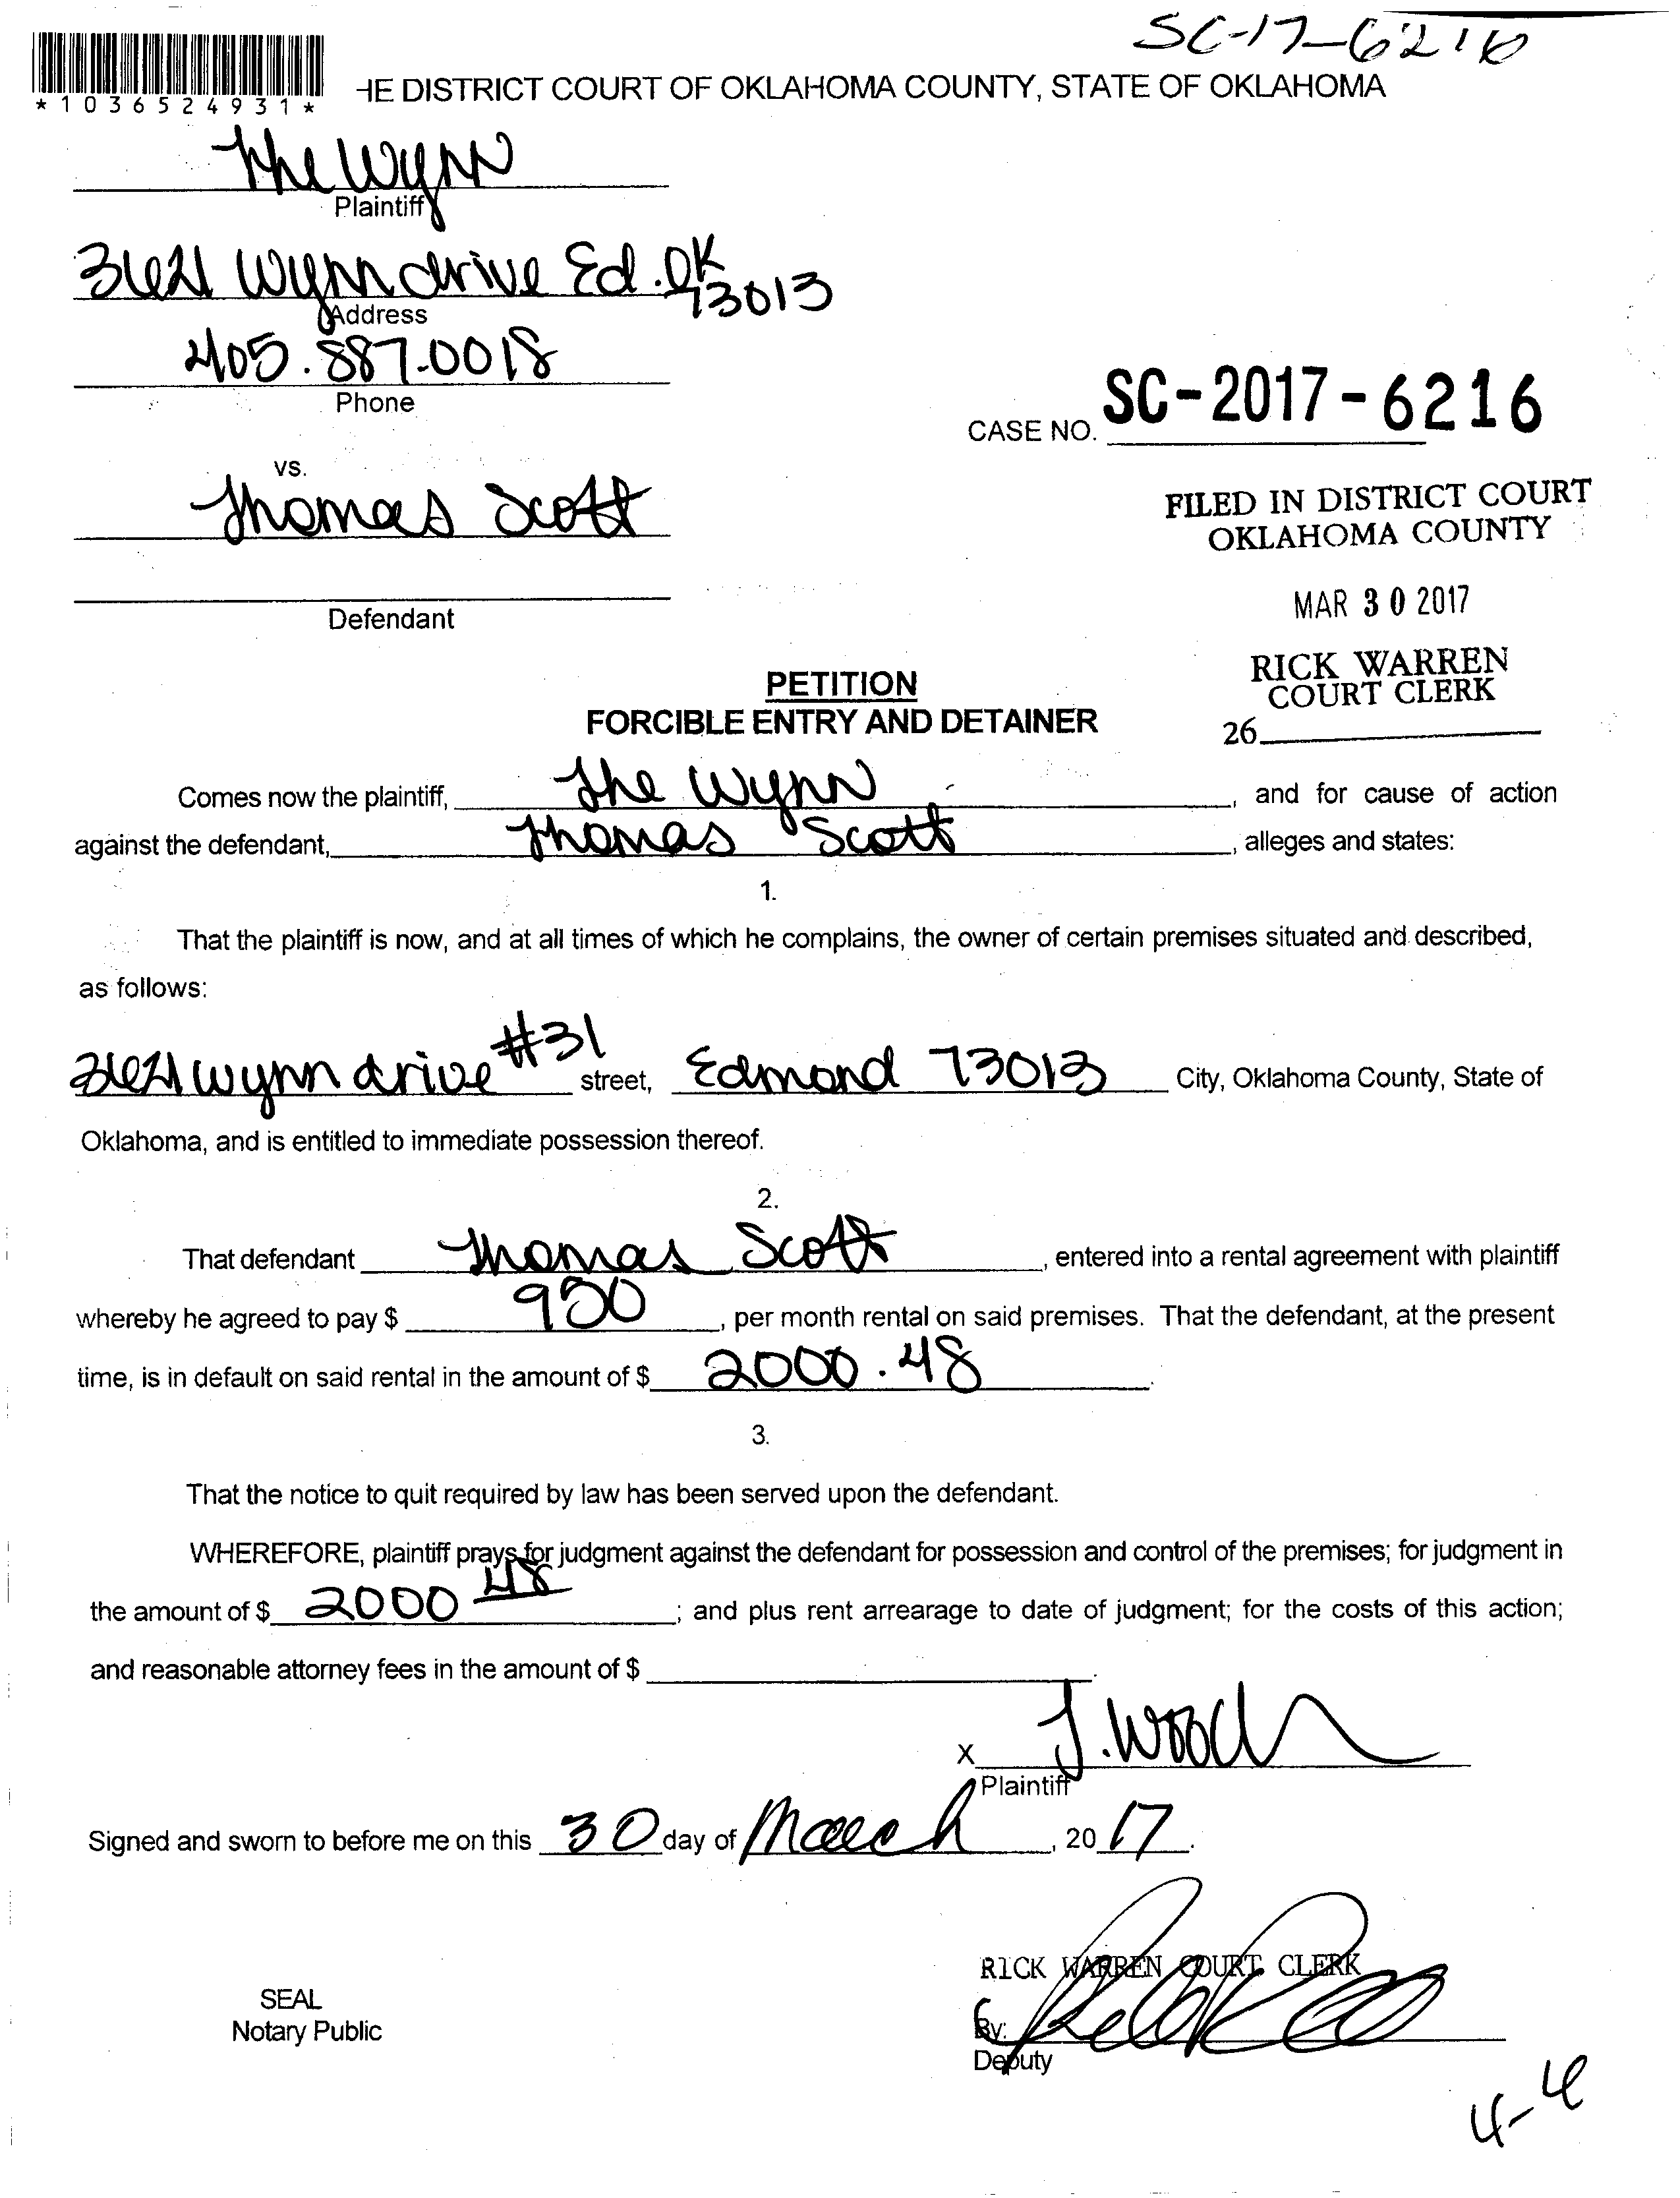 SC-17-6216
*1036524931*
HE DISTRICT COURT OF OKLAHOMA COUNTY, STATE OF OKLAHOMA
The Wynn
Plaintiff
3621 Wynn drive Ed. OK
73013
Address
405.887-0018
Phone
CASE NO. SC-2017-6216
vs.
Thomas Scott
FILED IN DISTRICT COURT
OKLAHOMA COUNTY
MAR 30 2017
Defendant
RICK WARREN
COURT CLERK
26
PETITION
FORCIBLE ENTRY AND DETAINER
Comes now the plaintiff, The Wynn, and for cause of action
against the defendant, Thomas Scott, alleges and states:
1.
That the plaintiff is now, and at all times of which he complains, the owner of certain premises situated and described,
as follows:
3621 wynn drive #31 street, Edmond 73013 City, Oklahoma County, State of
Oklahoma, and is entitled to immediate possession thereof.
2.
That defendant Thomas Scott, entered into a rental agreement with plaintiff
whereby he agreed to pay $ 950, per month rental on said premises. That the defendant, at the present
time, is in default on said rental in the amount of $ 2000.48.
3.
That the notice to quit required by law has been served upon the defendant.
WHEREFORE, plaintiff prays for judgment against the defendant for possession and control of the premises; for judgment in
the amount of $ 2000 48; and plus rent arrearage to date of judgment; for the costs of this action;
and reasonable attorney fees in the amount of $ .
X J. Wood
Plaintiff
Signed and sworn to before me on this 30 day of March, 20 17.
RICK WARREN COURT CLERK
SEAL
Notary Public
By:
Deputy
4-4